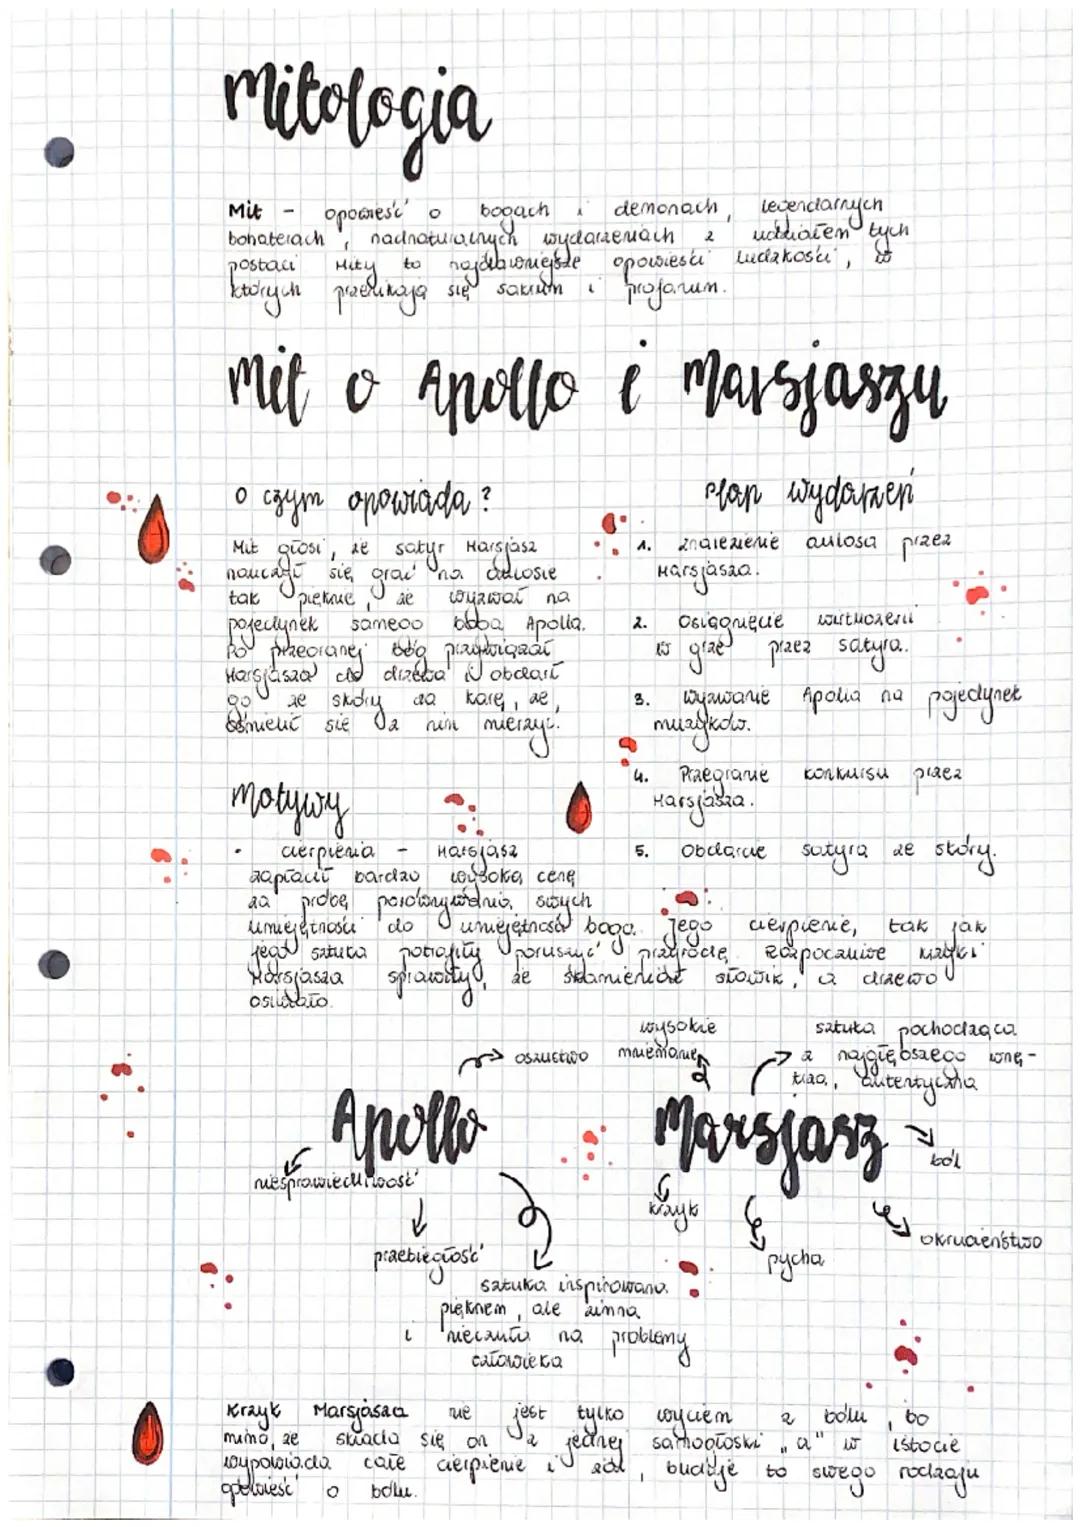 Mitologia
Mit - opowieść o bogach i demonach, legendarnych
bohaterach, nadnaturalnych wydarzeniach z udziałem tych
postaci Mity to najdawniejsze opowieści ludzkości, w
których przenikają się sakrum i profanum.
Mit o Apollo i Marsjaszu
O czym opowiada?
Mit głosi, że satyr Marsjasz
nauczył się grać na aulosie
tak pięknie, że wyzwał na
pojedynek samego boga Apolla.
Po przegranej bóg przywiązał
Marsjasza do drzewa i obdarł
go ze skóry za karę, że
ośmielił się z nim mierzyć.
Plan wydarzeń
1. Znalezienie aulosa przez
Marsjasza.
2. Osiągnięcie wirtuozerii
w grze przez satyra.
3. Wyzwanie Apolla na pojedynek
muzyków.
4. Przegranie konkursu przez
Marsjasza.
5. Obdarcie satyra ze skóry.
Motywy
• cierpienia - Marsjasz
zapłacił bardzo wysoką cenę
za próbę porównywania swych
umiejętności do umiejętności boga. Jego cierpienie, tak jak
jego sztuka potrafiły poruszyć przyrodę. Rozpaczliwe krzyki
Marsjasza sprawiły, że skamieniał słowik, a drzewo
osiwiało.
oszustwo
wysokie
mniemanie
sztuka pochodząca
z najgłębszego wnę-
trza, autentyczna
Apollo
Marsjasz
ból
niesprawiedliwość
krzyk
okrucieństwo
przebiegłość
pycha
sztuka inspirowana
pięknem, ale zimna
i nieczuła na problemy
człowieka
Krzyk Marsjasza nie jest tylko wyciem z bólu, bo
mimo, że składa się on z jednej samogłoski „a" w istocie
wypowiada całe cierpienie i żal, buduje to swego rodzaju
opowieść o bólu.